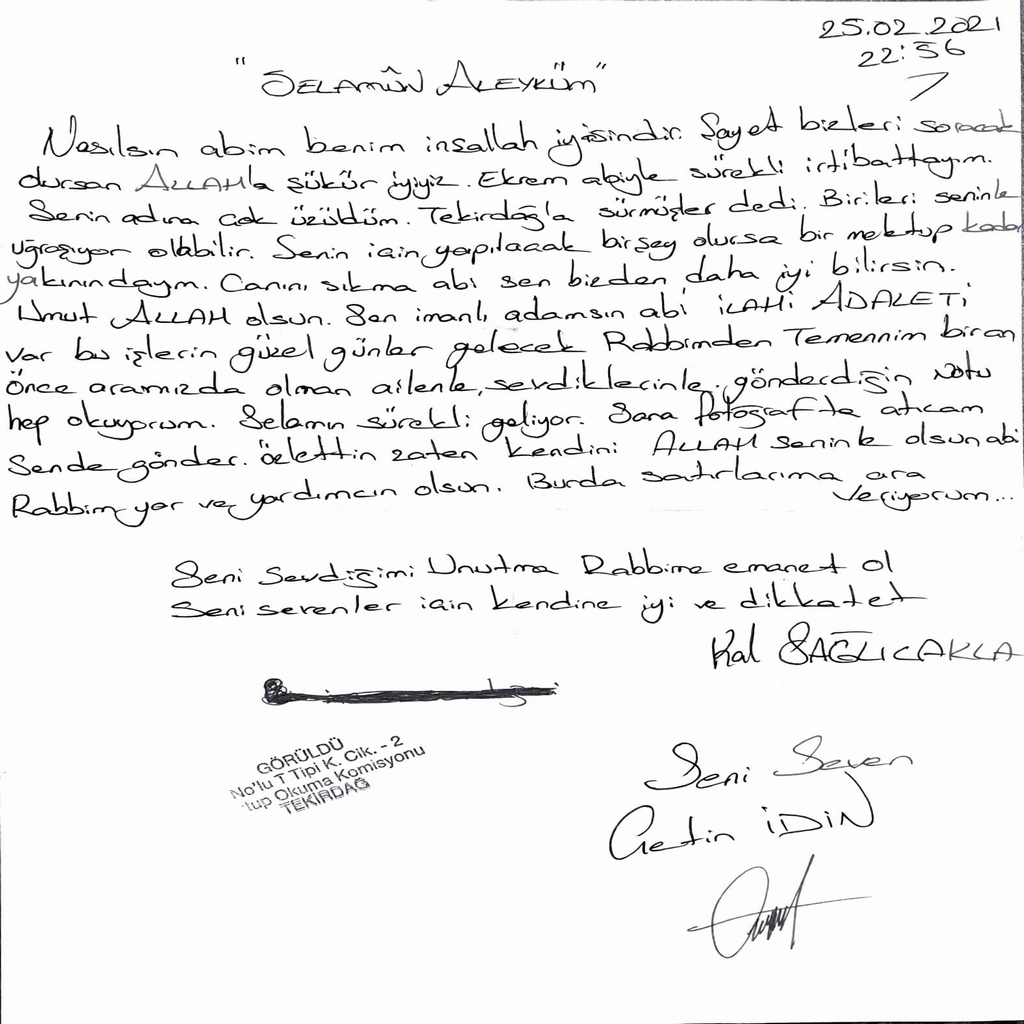 25.02.2021
22:56
"SELAMÛN ALEYKÜM"
Nasılsın abim benim inşallah iyisindir. Şayet bizleri soracak
olursan ALLAH'a şükür iyiyiz. Ekrem abiyle sürekli irtibattayım.
Senin adına çok üzüldüm. Tekirdağ'a sürmüşler dedi. Birileri seninle
uğraşıyor olabilir. Senin için yapılacak birşey olursa bir mektup kadar
yakınındayım. Canını sıkma abi sen bizden daha iyi bilirsin.
Umut ALLAH olsun. Sen imanlı adamsın abi İLAHİ ADALETİ
var bu işlerin güzel günler gelecek Rabbimden Temennim bir an
Önce aramızda olman ailenle, sevdiklerinle. gönderdiğin Notu
hep okuyorum. Selamın sürekli geliyor. Sana fotoğrafta atıcam
Sende gönder. Özlettin zaten kendini ALLAH seninle olsun abi
Rabbim yar ve yardımcın olsun. Burda satırlarıma ara
veriyorum...
Seni Sevdiğimi Unutma Rabbime emanet ol
Seni sevenler için kendine iyi ve dikkat et
Kal SAĞLICAKLA
GÖRÜLDÜ
No'lu T Tipi K. Cik. - 2
tup Okuma Komisyonu
TEKİRDAĞ
Seni Seven
Çetin İDİN